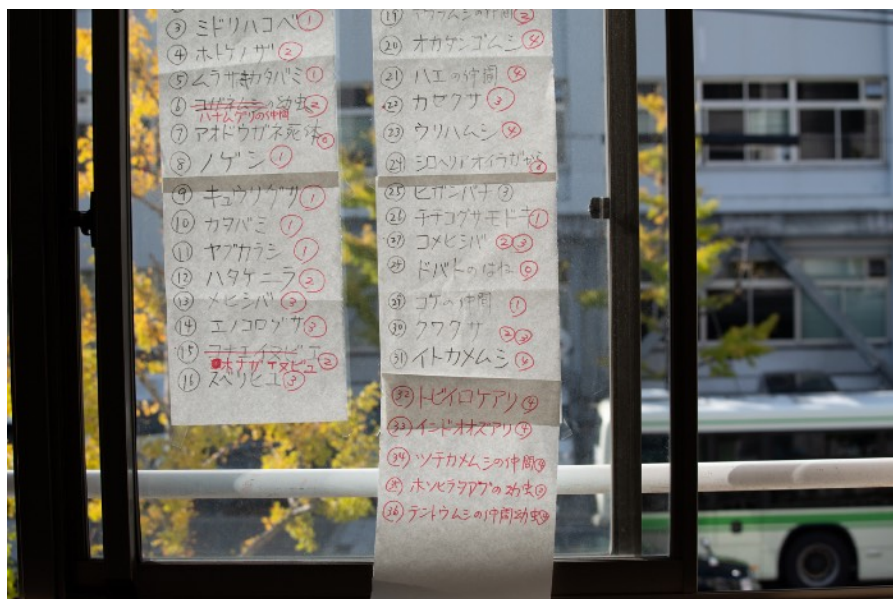 ③ ミドリハコベ ①
④ ホトケノザ ②
⑤ ムラサキカタバミ ①
⑥ コガネムシの幼虫 ②
ハナムグリの仲間
⑦ アオドウガネ死体
⑧ ノゲシ ①
⑨ キュウリグサ ①
⑩ カタバミ ①
⑪ ヤブカラシ ①
⑫ ハタケニラ ②
⑬ メヒシバ ③
⑭ エノコログサ ③
⑮ ホナガイヌビユ ②
⑯ スベリヒユ ③
⑲ の仲間
⑳ オカダンゴムシ ④
㉑ ハエの仲間 ④
㉒ カゼクサ ③
㉓ ウリハムシ ④
㉔ シロヘリアオイラガ
㉕ ヒガンバナ ③
㉖ チチコグサモドキ ①
㉗ コメヒシバ ② ③
ドバトのはね
㉙ コケの仲間 ①
㉚ クワクサ ② ③
㉛ イトカメムシ ④
㉜ トビイロケアリ ④
㉝ インドオオズアリ ④
㉞ ツチカメムシの仲間 ④
ホソヒラタアブの幼虫
㊱ テントウムシの仲間幼虫